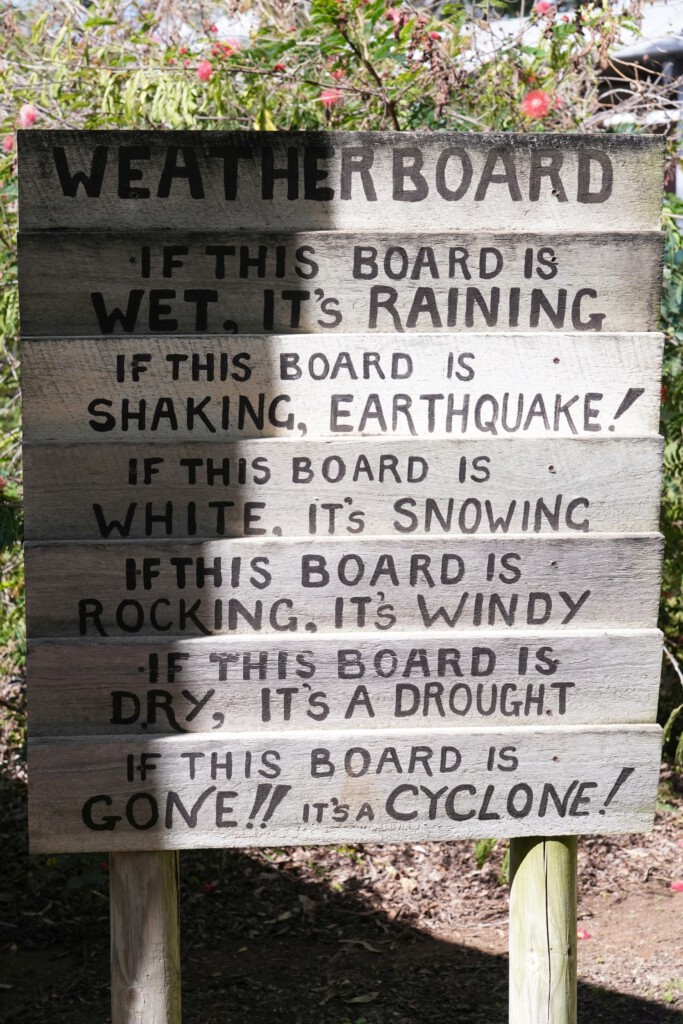 WEATHERBOARD
IF THIS BOARD IS
WET, IT'S RAINING
IF THIS BOARD IS
SHAKING, EARTHQUAKE!
IF THIS BOARD IS
WHITE, IT'S SNOWING
IF THIS BOARD IS
ROCKING, IT'S WINDY
IF THIS BOARD IS
DRY, IT'S A DROUGHT
IF THIS BOARD IS
GONE!! IT'S A CYCLONE!